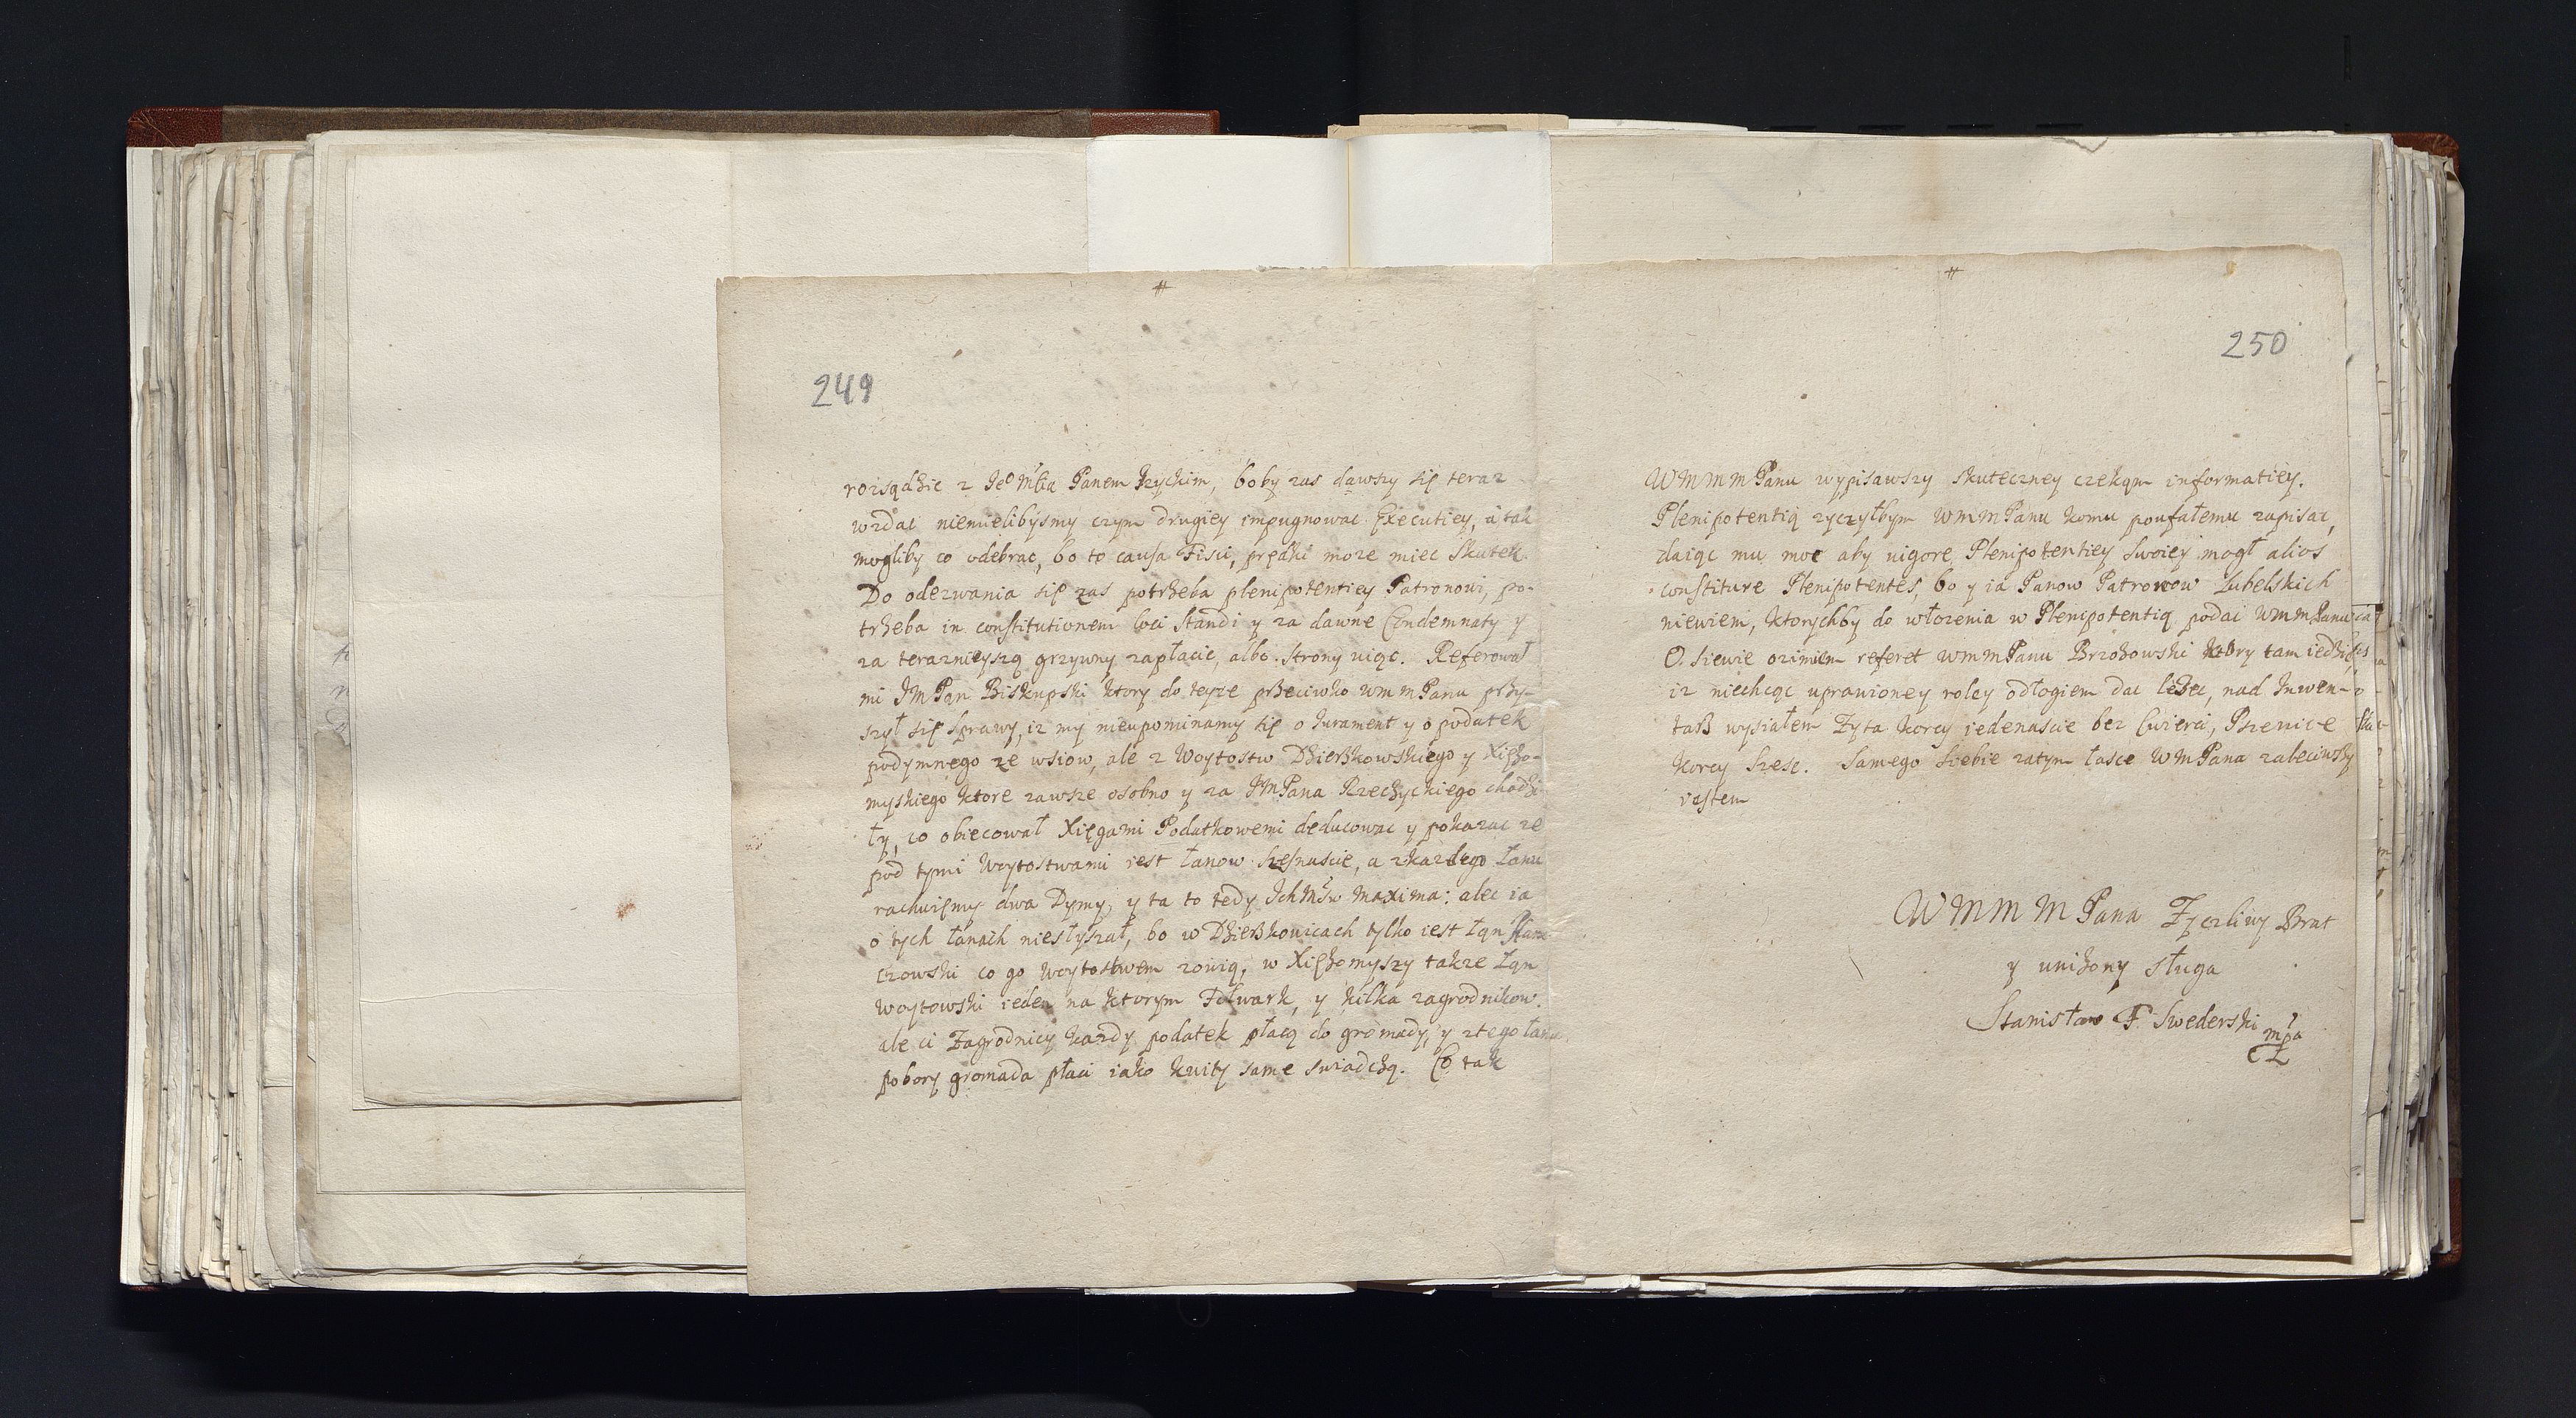 249
rozsądzic z Je° Mścią Panem Rzyckim, boby zas dawszy się teraz
wzdac niemielibysmy czym drugiey impugnowac Executiey, a tak
mogliby co odebrac, bo to causa Fisci, prędki moze miec skutek.
Do odezwania się zas potrzeba plenipotentiey Patronowi, po-
trzeba in constitutionem loci standi y za dawne Condemnaty y
za terazniejszą grzywny zapłacic, albo strony uiąc. Referował
mi JM Pan Biskupski ktory do teyze przeciwko WMMPanu przy-
szył się sprawy, iz my nieupominamy się o Jurament y o podatek
podymnego ze wsiow, ale z Woytostw Dzierzkowskiego y Xięzo-
myskiego ktore zawsze osobno y za JMPana Rzechyckiego chodzi-
ły, co obiecował Xięgami Podatkowemi deducowac y pokazac ze
pod tymi Woytostwami iest łanow szesnascie, a zkazdego łanu
rachuięmy dwa Dymy, y ta to tedy IchMsw maxima: alec ia
o tych łanach niesłyszał, bo w Dzierzkowicach tylko iest łan
czowski co go woytostwem zowią, w Xięzomyszy takze łan
woytowski ieden na ktorym Folwark, y kilka zagrodnikow.
ale ci Zagrodnicy kazdy podatek płacą do gromady, y ztego łanu
pobory gromada płaci iako kwity same swiadczą. Co tak
250
WMMMPanu wypisawszy skuteczney czekam informatiey.
Plenipotentią zyczyłbym WMMPanu komu poufałemu zapisac,
daiąc mu moc aby vigore Plenipotentiey swoiey mogł alios
constituere Plenipotentes, bo y ia Panow Patronow Lubelskich
niewiem, ktorychby do włozenia w Plenipotentią podac WMMPanu
O. siewie ozimiem referet WMMPanu Brzozowski ktory tam iedzie,
iz niechcąc uprawioney roley odłogiem dac lezec, nad Inwen-
tarz wysiałem Zyta korcy iedenascie bez cwierci, Pszenice
korcy szesc. Samego siebie zatym łasce WMPana zaleciwszy
iestem
WMMMPana Zyczliwy Brat
y unizony sługa
Stanisław F. Swederski mpa